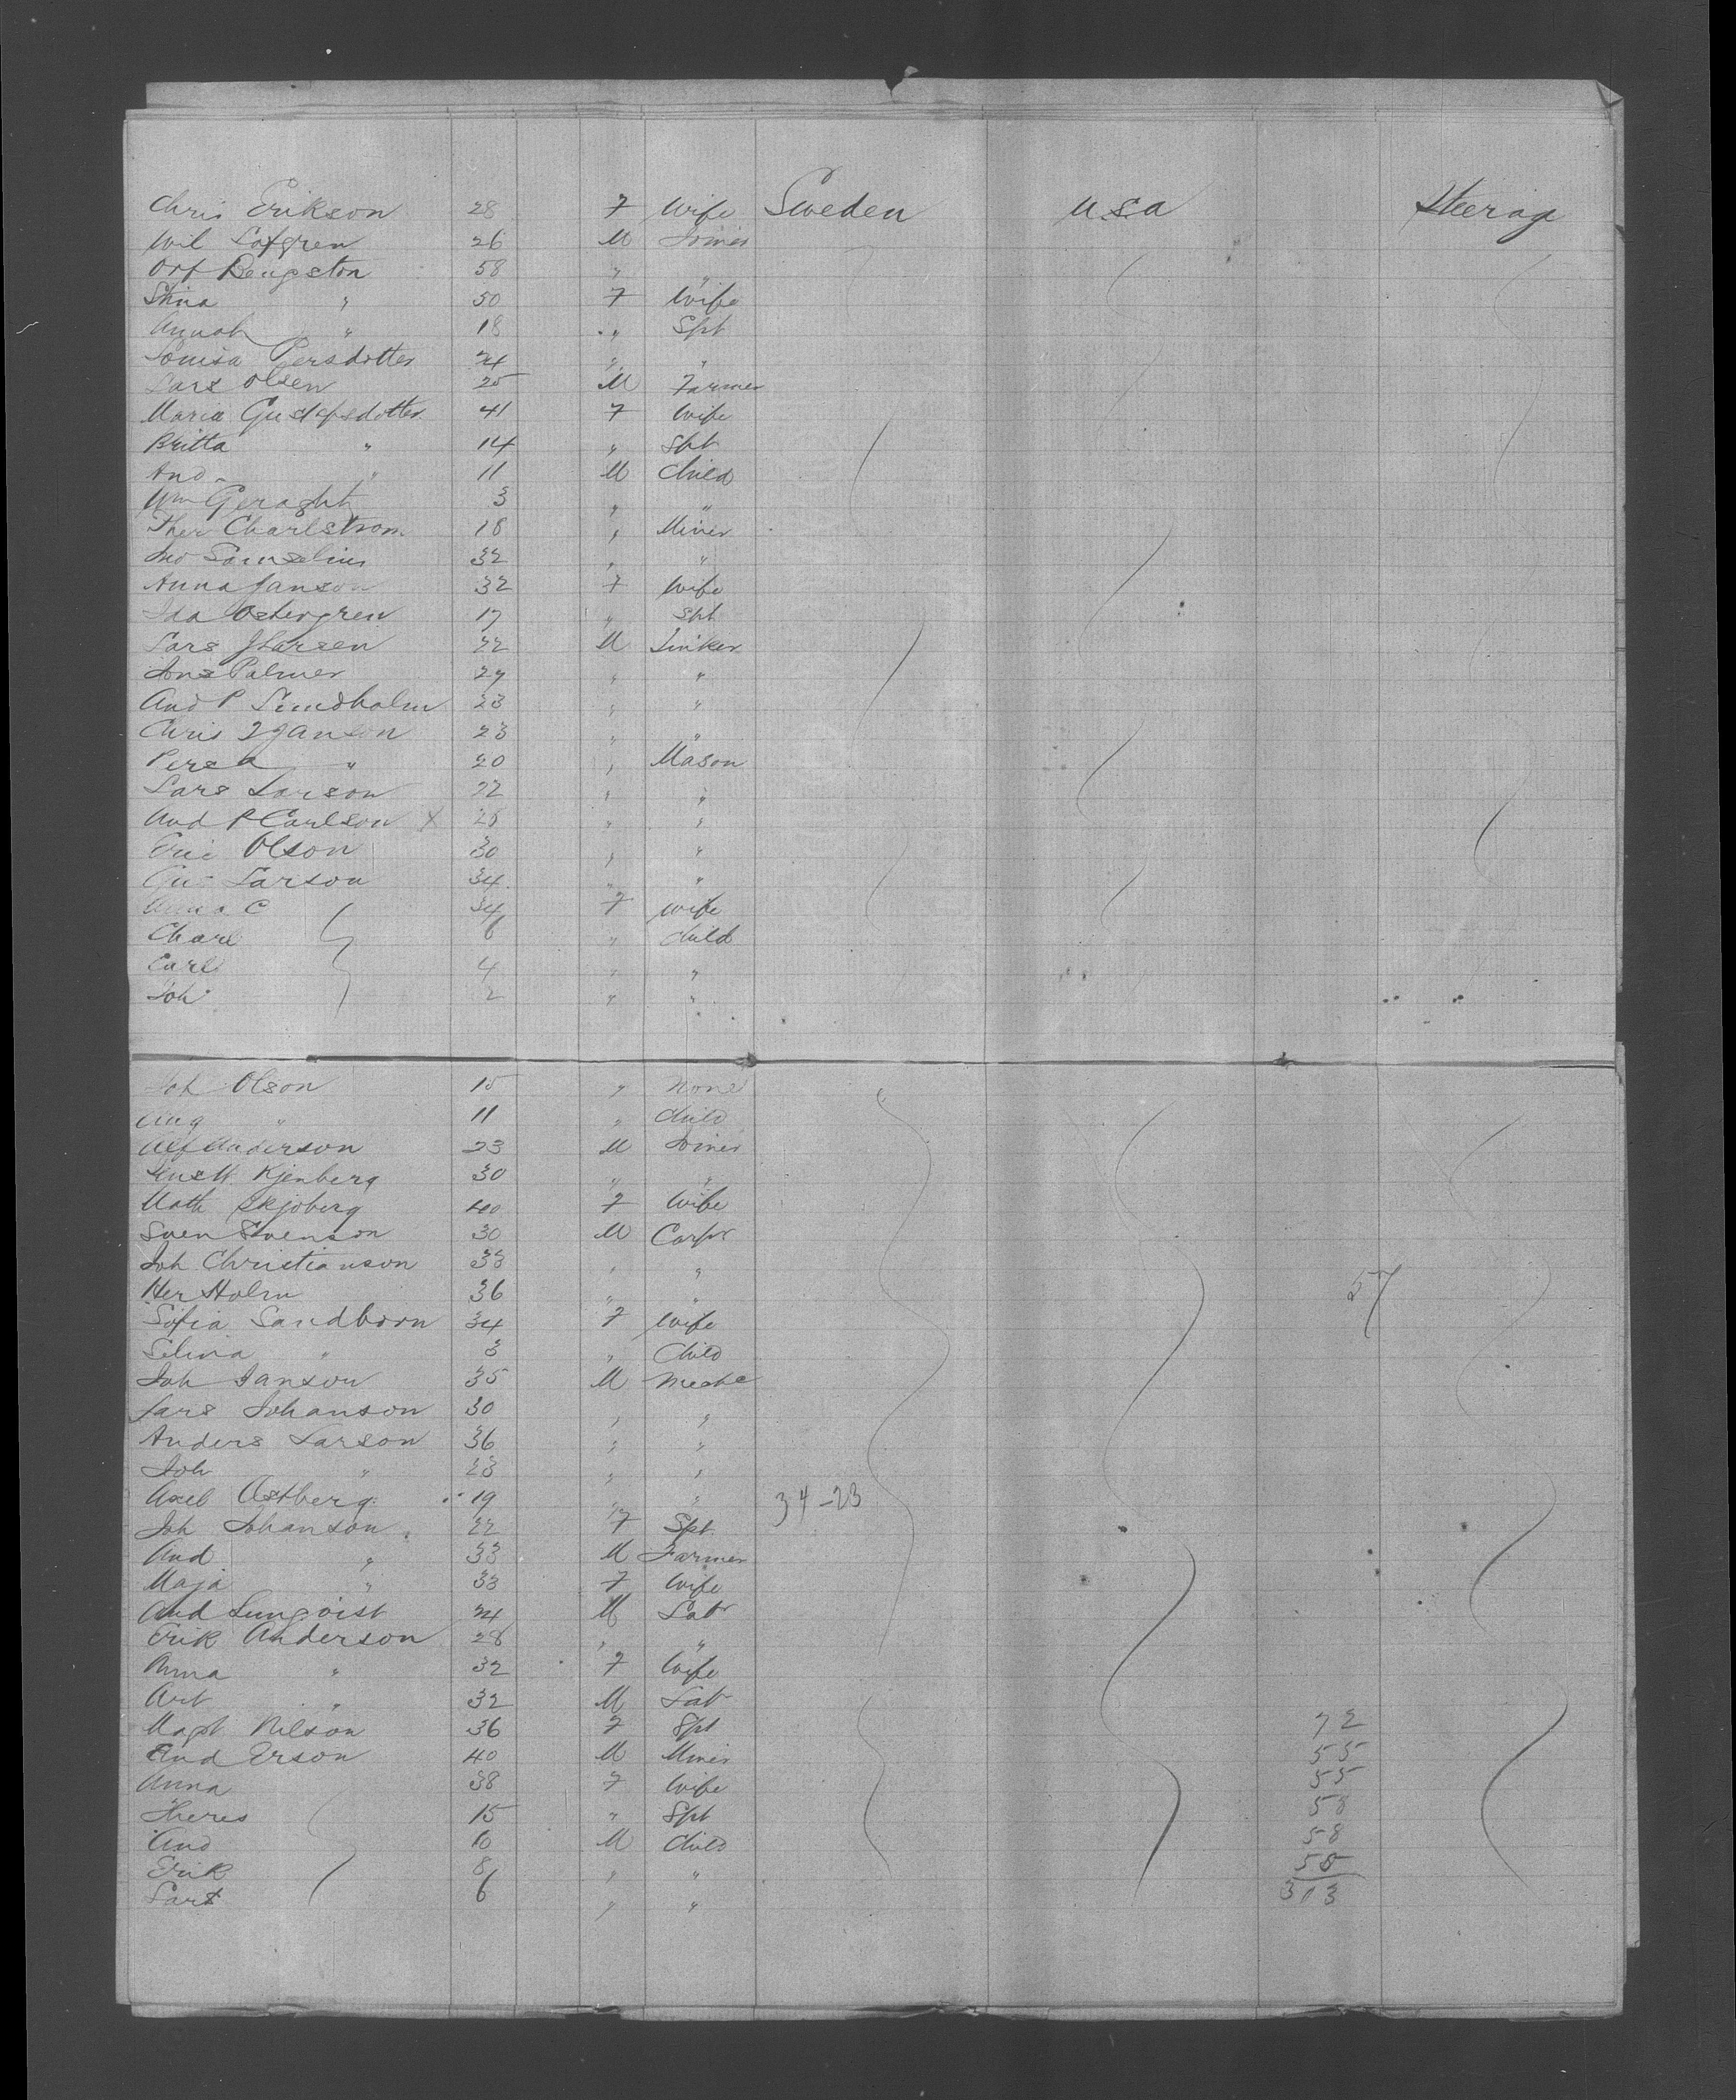 Chris Erikson 28 F Wife Sweden USA Steerag
Wil Lofgren 26 M Joiner
Orf Bengston 58 " "
Stina " 50 F Wife
Annah " 18 " Spt
Louisa Persdotter 24 " "
Lars Olsen 25 M Farmer
Maria Gustafsdotter 41 F Wife
Britta " 14 " Spt
And " 11 M Child
Wm Geraghty 3 " "
Ther Charlstrom 18 " Miner
Jno Samselius 32 " "
Anna Janson 32 F Wife
Ida Ostergren 17 " Spt
Lars J Larsen 22 M Sinker
Jons Palmer 29 " "
And P Sundholm 23 " "
Chris J Janson 23 " "
Pers A " 20 " Mason
Lars Larson 22 " "
And P Carlson X 25 " "
Eric Olson 30 " "
Gus Larson 34 " "
Anna C 34 F Wife
Charl 6 " Child
Carl 4 " "
Joh 2 " "
Joh Olson 15 " None
Aug " 11 " Child
Alf Anderson 23 M Joiner
Gust Kjenberg 30 " "
Math Skjoberg 40 F Wife
Sven Svenson 30 M Carpr
Joh Christianson 33 " "
Her Holm 36 " " 57
Sofia Sandborn 34 F Wife
Selina " 3 " Child
Joh Janson 35 M Meche
Lars Johanson 30 " "
Anders Larson 36 " "
Joh " 23 " "
Axel Ostberg 19 " " 34-23
Joh Johanson 22 F Spt
And " 33 M Farmer
Maja " 33 F Wife
And Lunqvist 24 M Labr
Erik Anderson 28 " "
Anna " 32 F Wife
Art " 32 M Labr
Magt Nilson 36 F Spt 72
And Erson 40 M Miner 55
Anna 38 F Wife 55
Theres 15 " Spt 58
And 10 M Child 58
Erik 8 " " 58
Lars 6 " " 313